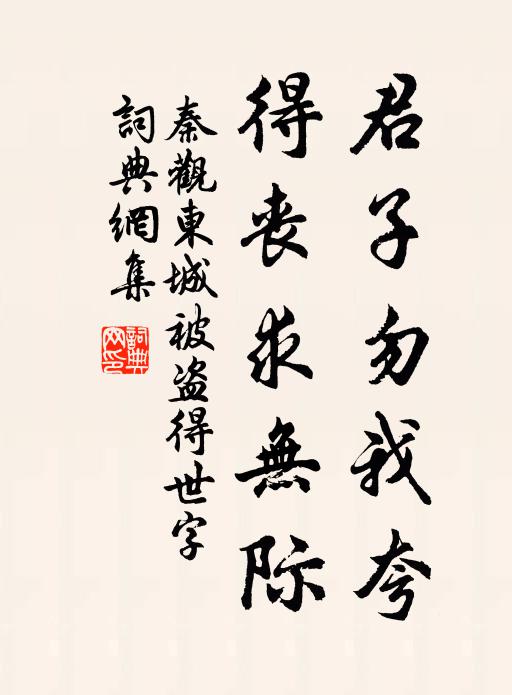 君子勿我夸
得丧求無际
秦觀東城被盗得世字
詞典網集
詞典
网印